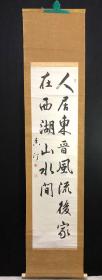 人居東晉風流後家
在西湖山水間